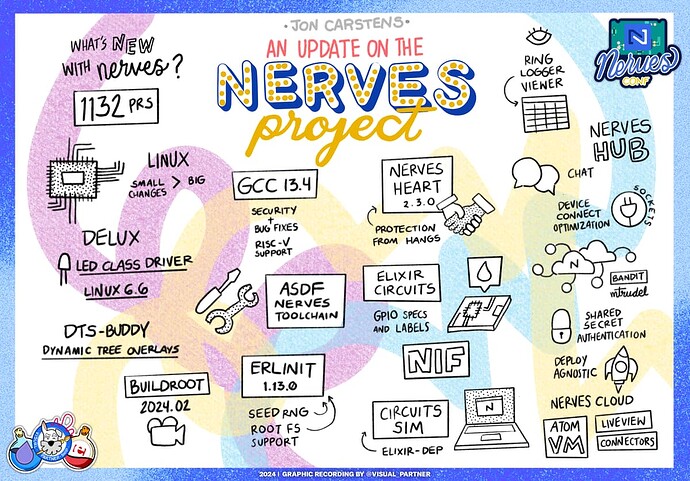 •JON CARSTENS•
AN UPDATE ON THE
NERVES
project
WHAT'S NEW
WITH nerves?
1132 PRS
LINUX
SMALL > BIG
CHANGES
DELUX
LED CLASS DRIVER
LINUX 6.6
DTS-BUDDY
DYNAMIC TREE OVERLAYS
BUILDROOT
2024.02
GCC 13.4
SECURITY
+
BUG FIXES
RISC-V
SUPPORT
ASDF
NERVES
TOOLCHAIN
ERLINIT
1.13.0
SEED RNG
ROOT FS
SUPPORT
NERVES
HEART
2.3.0
PROTECTION
FROM HANGS
ELIXIR
CIRCUITS
GPIO SPECS
AND LABELS
NIF
CIRCUITS
SIM
ELIXIR-DEP
N
RING
LOGGER
VIEWER
N
Nerves
CONF
NERVES
HUB
CHAT
DEVICE
CONNECT
OPTIMIZATION
SOCKETS
N
BANDIT
mtrudel
SHARED
SECRET
AUTHENTICATION
DEPLOY
AGNOSTIC
NERVES CLOUD
ATOM
VM
LIVEVIEW
CONNECTORS
2024 | GRAPHIC RECORDING BY @VISUAL_PARTNER